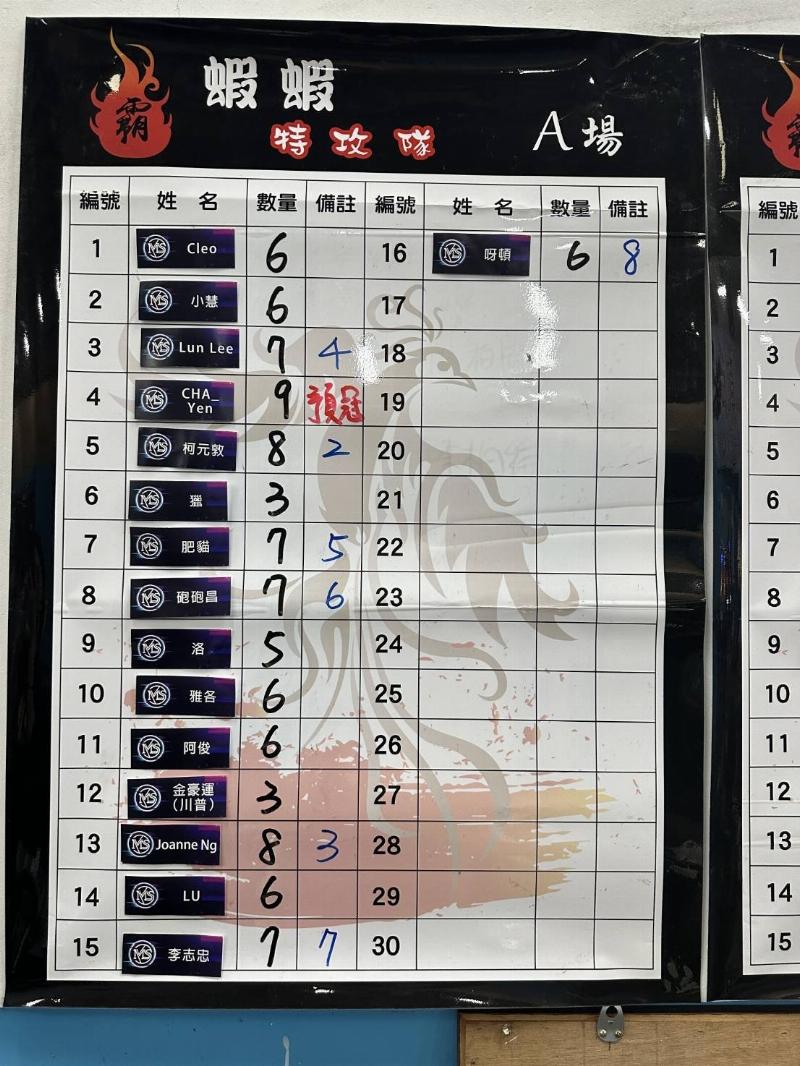 霸
蝦蝦
特攻隊
A場
編號 姓名 數量 備註 編號 姓名 數量 備註
1 MS Cleo 6 16 MS 呀頓 6 8
2 MS 小慧 6 17
3 MS Lun Lee 7 4 18
4 MS CHA_ Yen 9 預冠 19
5 MS 柯元敦 8 2 20
6 MS 獵 3 21
7 MS 肥貓 7 5 22
8 MS 砲砲昌 7 6 23
9 MS 洛 5 24
10 MS 雅各 6 25
11 MS 阿俊 6 26
12 MS 金豪運 (川普) 3 27
13 MS Joanne Ng 8 3 28
14 MS LU 6 29
15 MS 李志忠 7 7 30
編號
1
2
3
4
5
6
7
8
9
10
11
12
13
14
15